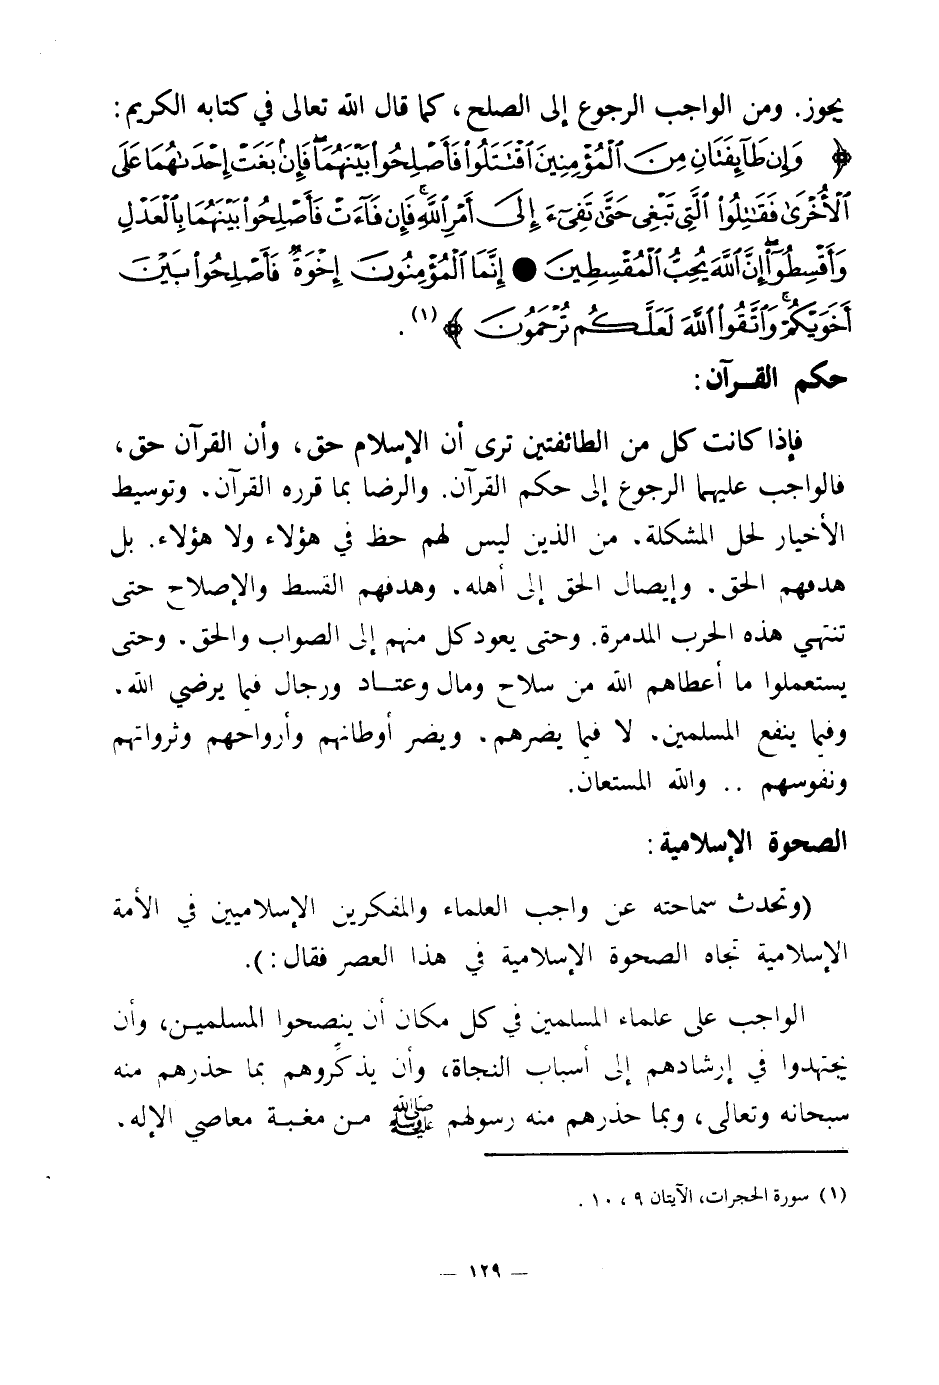 يجوز. ومن الواجب الرجوع إلى الصلح، كما قال الله تعالى في كتابه الكريم:
﴿ وَإِن طَآئِفَتَانِ مِنَ ٱلْمُؤْمِنِينَ ٱقْتَتَلُوا۟ فَأَصْلِحُوا۟ بَيْنَهُمَا ۖ فَإِنۢ بَغَتْ إِحْدَىٰهُمَا عَلَى
ٱلْأُخْرَىٰ فَقَٰتِلُوا۟ ٱلَّتِى تَبْغِى حَتَّىٰ تَفِىٓءَ إِلَىٰٓ أَمْرِ ٱللَّهِ ۚ فَإِن فَآءَتْ فَأَصْلِحُوا۟ بَيْنَهُمَا بِٱلْعَدْلِ
وَأَقْسِطُوٓا۟ ۖ إِنَّ ٱللَّهَ يُحِبُّ ٱلْمُقْسِطِينَ ● إِنَّمَا ٱلْمُؤْمِنُونَ إِخْوَةٌ فَأَصْلِحُوا۟ بَيْنَ
أَخَوَيْكُمْ ۚ وَٱتَّقُوا۟ ٱللَّهَ لَعَلَّكُمْ تُرْحَمُونَ ﴾ (١).
حكم القـرآن:
فإذا كانت كل من الطائفتين ترى أن الإسلام حق، وأن القرآن حق،
فالواجب عليهما الرجوع إلى حكم القرآن. والرضا بما قرره القرآن. وتوسيط
الأخيار لحل المشكلة. من الذين ليس لهم حظ في هؤلاء ولا هؤلاء. بل
هدفهم الحق. وإيصال الحق إلى أهله. وهدفهم القسط والإصلاح حتى
تنتهي هذه الحرب المدمرة. وحتى يعود كل منهم إلى الصواب والحق. وحتى
يستعملوا ما أعطاهم الله من سلاح ومال وعتـاد ورجال فيما يرضي الله.
وفيما ينفع المسلمين. لا فيما يضرهم. ويضر أوطانهم وأرواحهم وثرواتهم
ونفوسهم .. والله المستعان.
الصحوة الإسلامية:
(وتحدث سماحته عن واجب العلماء والمفكرين الإسلاميين في الأمة
الإسلامية تجاه الصحوة الإسلامية في هذا العصر فقال:).
الواجب على علماء المسلمين في كل مكان أن ينصحوا المسلميـن، وأن
يجتهدوا في إرشادهم إلى أسباب النجاة، وأن يذكِّروهم بما حذرهم منه
سبحانه وتعالى، وبما حذرهم منه رسولهم ﷺ مـن مغبـة معاصي الإله.
(١) سورة الحجرات، الآيتان ٩، ١٠.
– ١٢٩ –